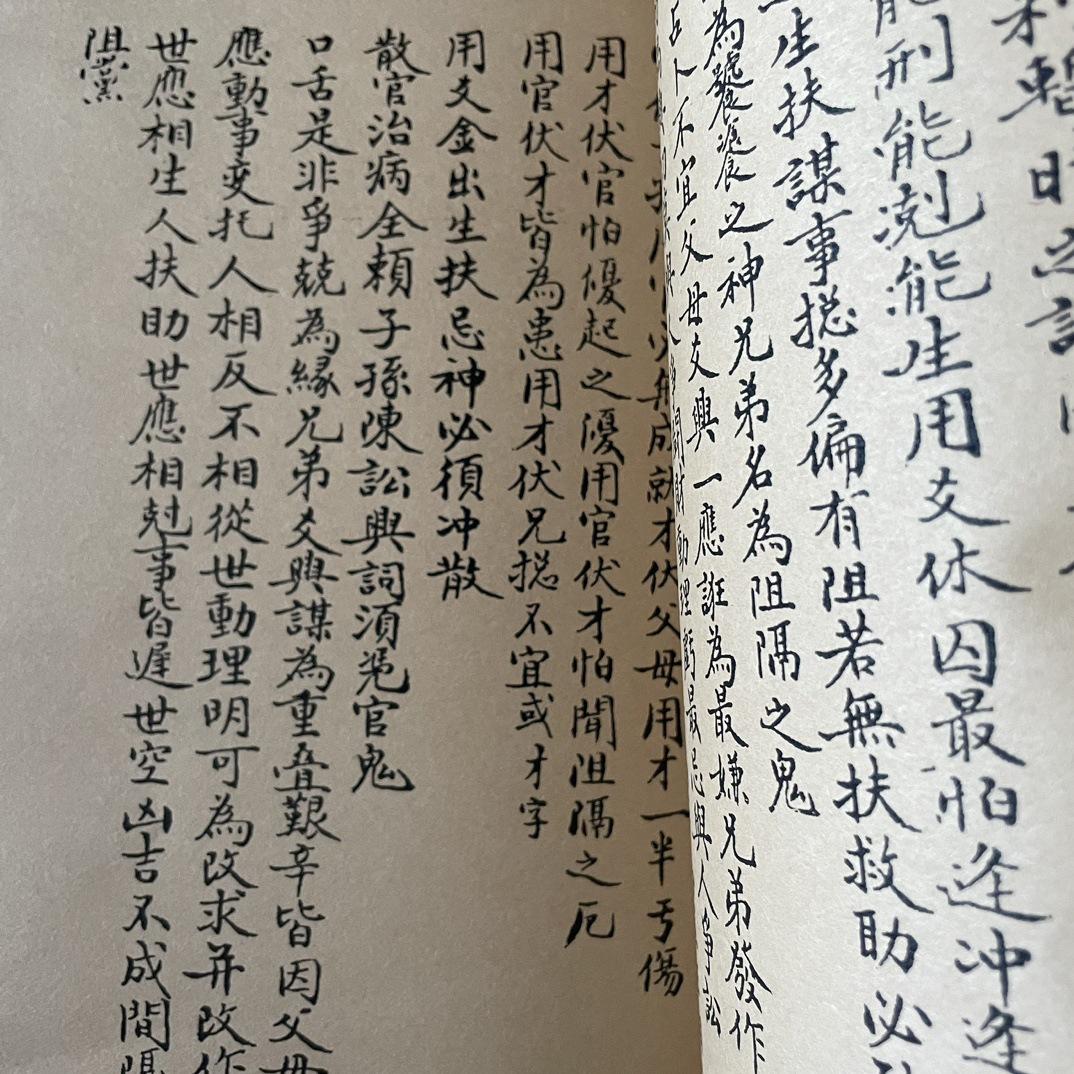 才 時之
能刑能尅能生用爻休囚最怕逢冲逢
生扶謀事搃多偏有阻若無扶救助必
為饕餮之神兄弟名為阻隔之鬼
占卜不宜父母爻興一應誑為最嫌兄弟發作
動理虧最忌與人爭訟
成就才伏父母用才一半亏傷
用才伏官怕優起之優用官伏才怕聞阻隔之厄
用官伏才皆為患用才伏兄搃不宜或才字
用爻金出生扶忌神必須冲散
散官治病全賴子孫陳訟興詞須凴官鬼
口舌是非爭兢為緣兄弟爻興謀為重叠艱辛皆因父母
應動事变托人相反不相從世動理明可為改求并改作
世應相生人扶助世應相尅事皆遲世空凶吉不成間隔
阻黨